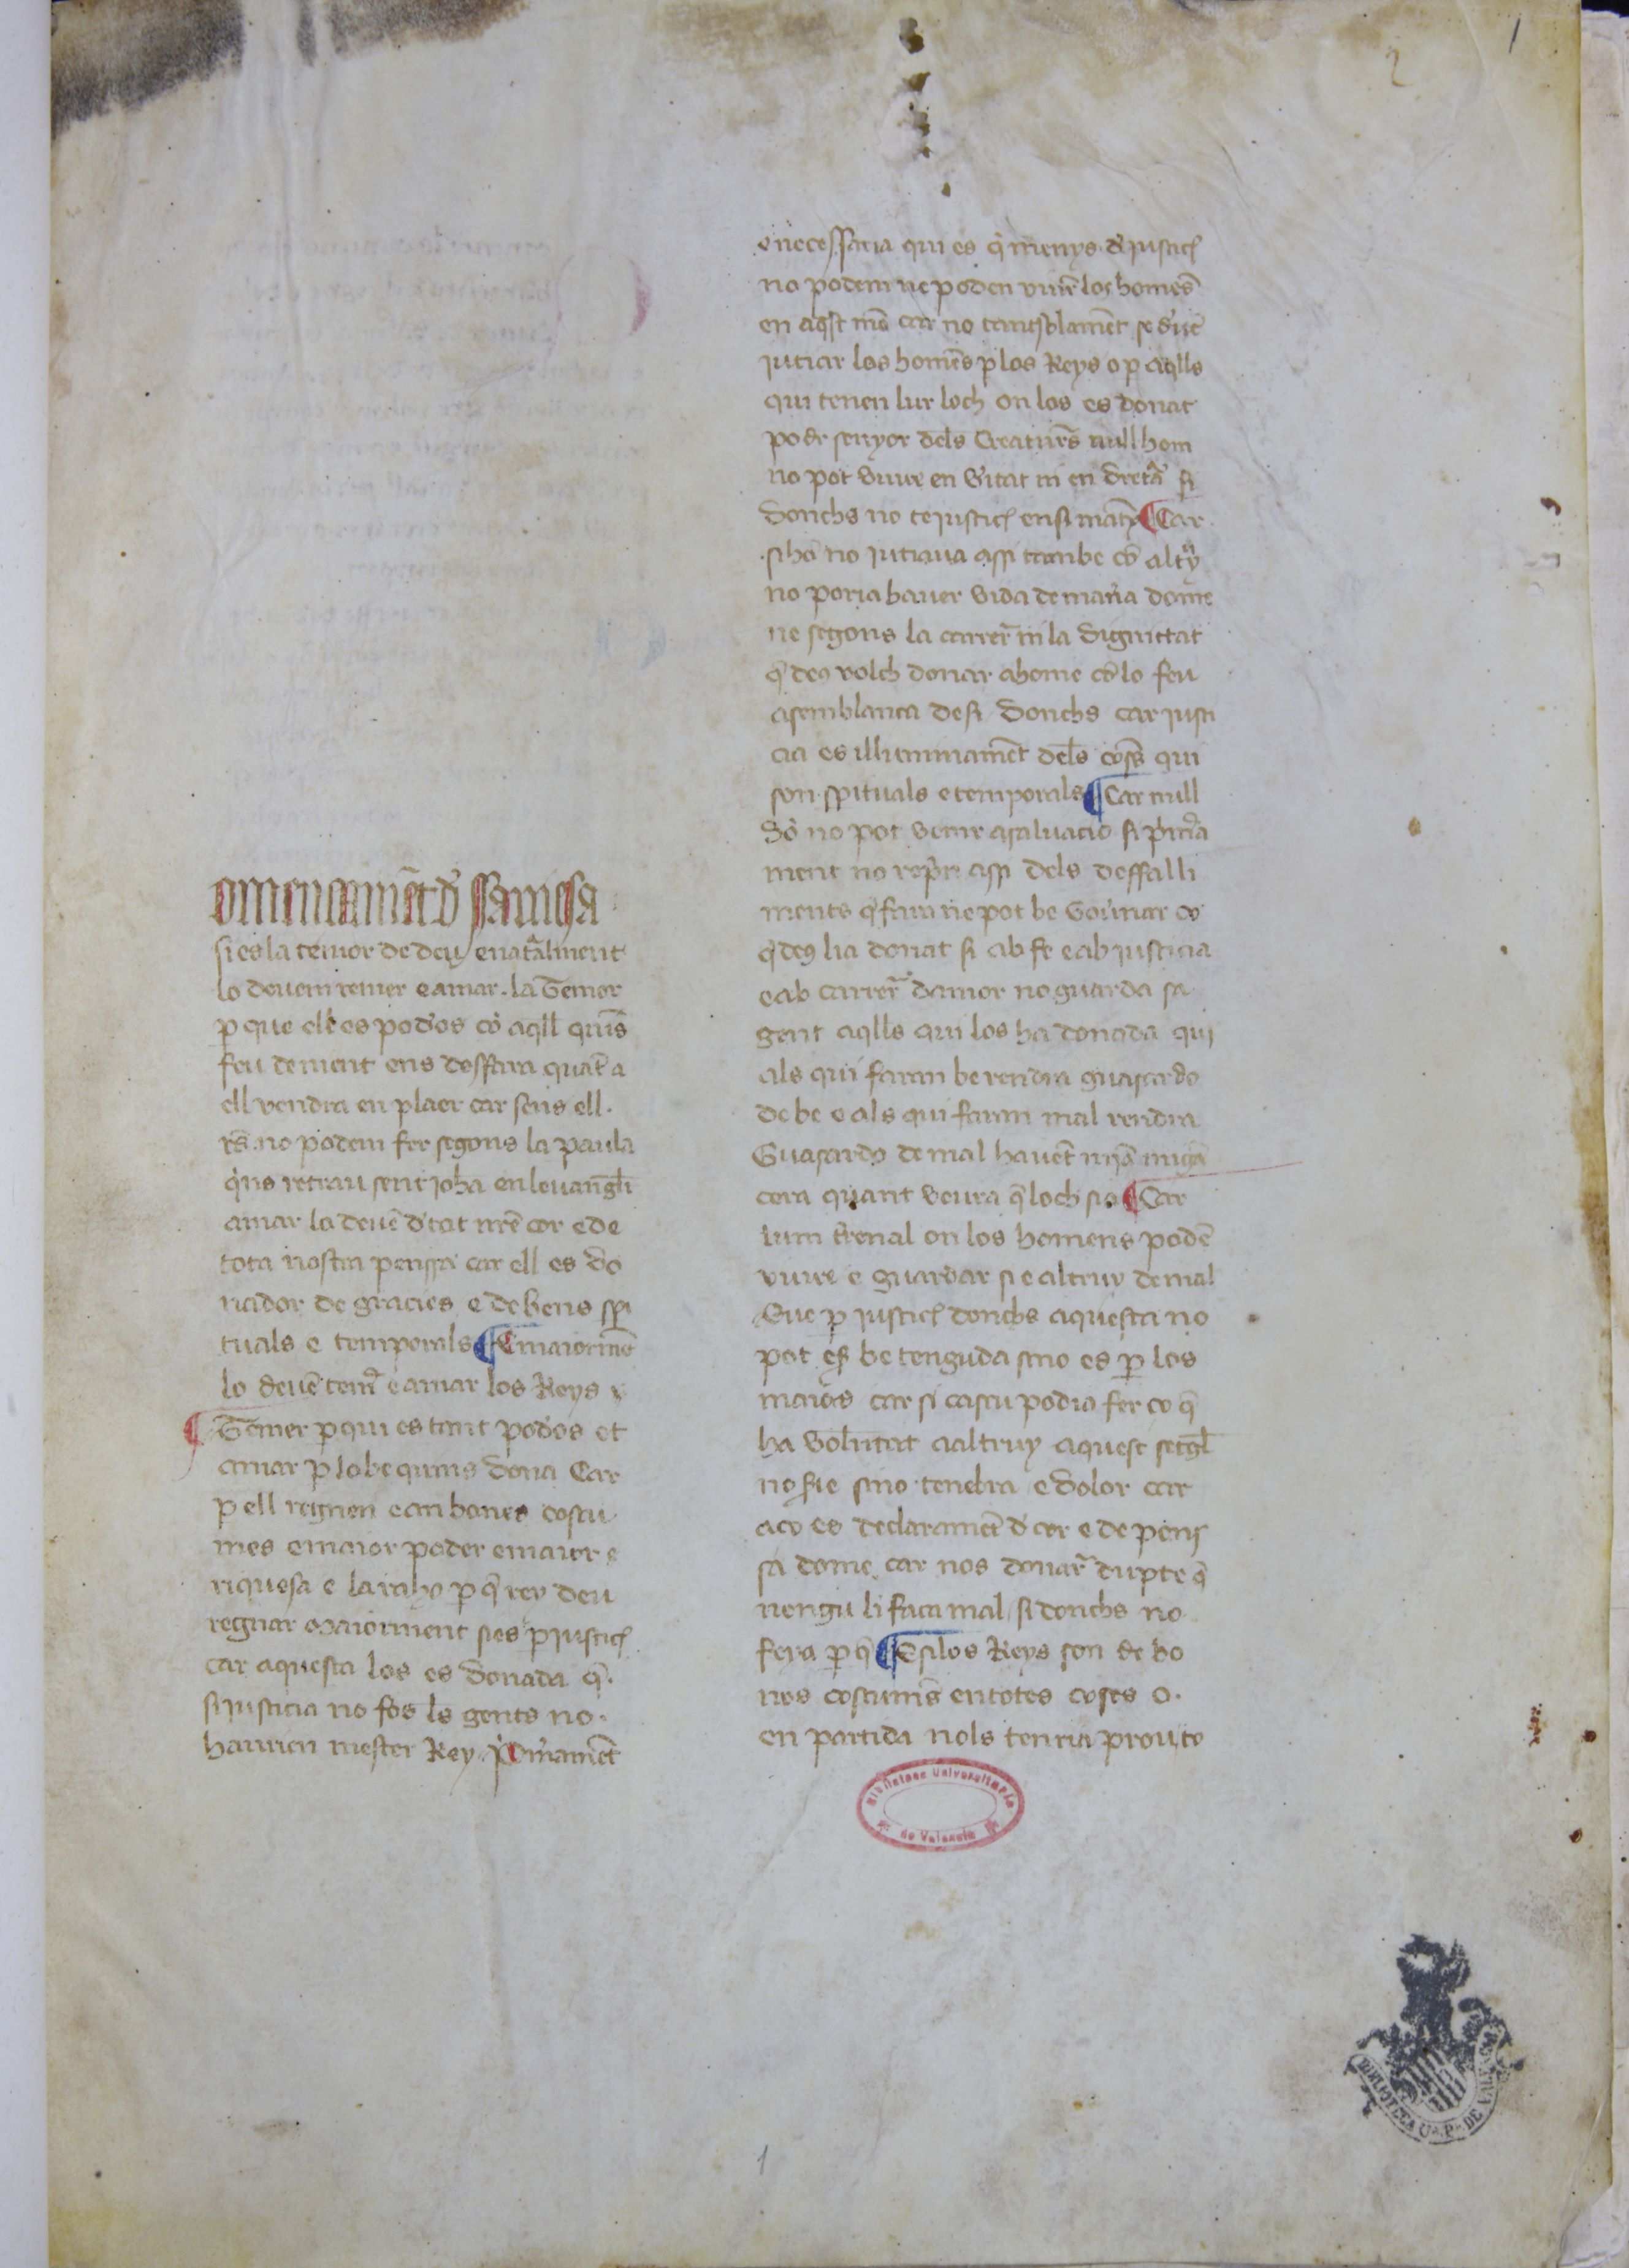 1
2
omencamẽt d saviesa
si es la temor de deu e nat̃alment
lo devem temer e amar. la Temor
p que ell es podos co aq̃ll quis̃
feu de nient ens desffara quãt a
ell vendra en plaer car sens ell.
rẽs no podem fer segons la paula
q̃ns retrau sent joha en levangli
amar lo devẽ d tot nr̃e cor e de
tota nostra pensa car ell es do
nador de gracies e de bens spi
tuals e temporals ¶ E maiormẽt
lo devẽ tem̃ e amar los Reys
¶ Temer p qui es tant podos et
amar p lo be quins dona Car
p ell regnen e an bones costu
mes e maior poder e maior
riquesa e la raho p q̃ rey deu
regnar maiorment sies p justicĩ
car aquesta los es donada q̃.
si justicia no fos ls gents no.
haurien mester Rey. p̃ O m̃amẽt
e necessaria qui es q̃ menys d justicĩ
no podem ne poden viur̃e los homẽs
en aq̃st mõ car no
jutiar los homẽs p los Reys o p aq̃lls
qui tenen lur loch on los es donat
poder senyor dels Creatur̃s null hom
no pot viure en v̾itat ni en dreta si
donchs no te justicĩ en si mat̃x ¶ Car
si hõ no jutiava assi tambe cõ altruy
no poria haver vida de man̾a dome
ne segons la carrer̃ ni la dignittat
q̃ deus volch donar a home cõ lo feu
a semblanca de si Donchs car justi
cia es illuminamẽt dels coses̃ qui
son spituals e temporals ¶ Car null
hõ no pot venir a salvacio si p̃m̾a
ment no repren assi dels deffalli
ments q̃ fara ne pot be gov̾nar co
q̃ deus lia donat si ab fe e ab justicia
e ab carrer̃ damor no guarda sa
gent aq̃lls qui los ha donada qui
als qui faran be rendra guasardo
de be e als qui faran mal rendra
Guasardo de mal havẽt
cora quant veura q̃ loch sia ¶ Car
lum t̃renal on los homens podẽ
viure e guardar si e altruy de mal
Que p justicĩ donchs aquesta no
pot esser be tenguda sino es p los
maiors car si cascu podia fer co q̃
ha voluntat a altruy aquest segl̃
no sie sino tenebra e dolor car
aco es declaramẽt d cor e de pens
sa dome. car nos donar̃ dupte q̃
nengu li faca mal si donchs no
feya p q̃ ¶ E si los Reys son de bo
nes costums̃ en totes coses o.
en partida nols tenria prou to
Biblioteca Universitaria de Valencia
BIBLIOTECA U. P. DE VALENCIA
1